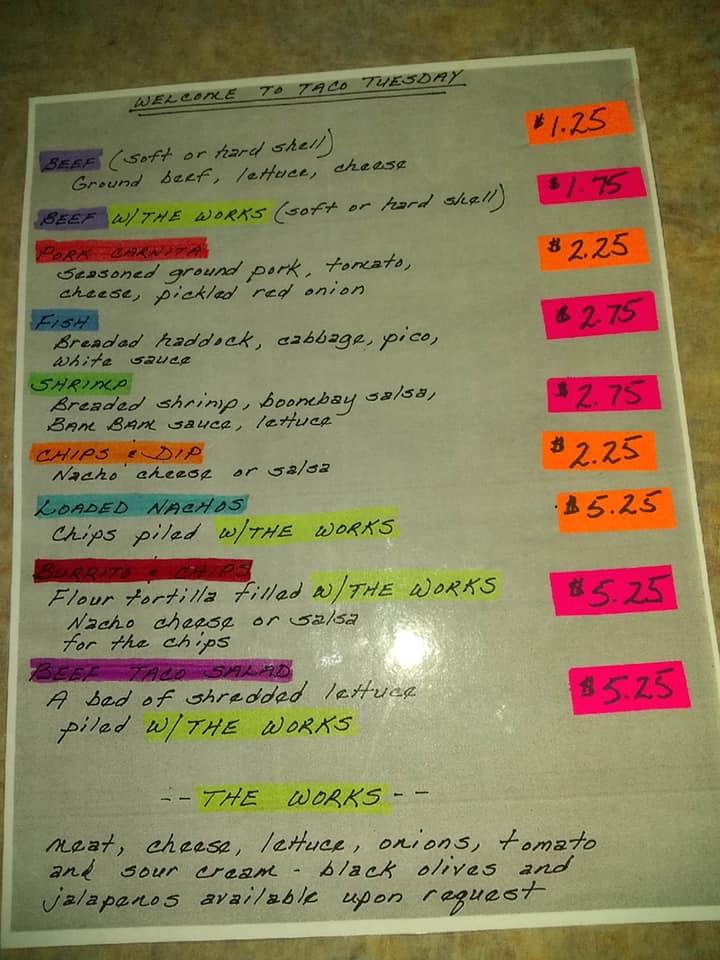 WELCOME TO TACO TUESDAY
BEEF (soft or hard shell) $1.25
Ground beef, lettuce, cheese
BEEF W/THE WORKS (soft or hard shell) $1.75
PORK CARNITA $2.25
Seasoned ground pork, tomato,
cheese, pickled red onion
FISH $2.75
Breaded haddock, cabbage, pico,
white sauce
SHRIMP $2.75
Breaded shrimp, boombay salsa,
BAM BAM sauce, lettuce
CHIPS & DIP $2.25
Nacho cheese or salsa
LOADED NACHOS $5.25
Chips piled W/THE WORKS
BURRITO & CHIPS $5.25
Flour tortilla filled W/THE WORKS
Nacho cheese or salsa
for the chips
BEEF TACO SALAD $5.25
A bed of shredded lettuce
piled W/THE WORKS
-- THE WORKS --
meat, cheese, lettuce, onions, tomato
and sour cream - black olives and
jalapenos available upon request